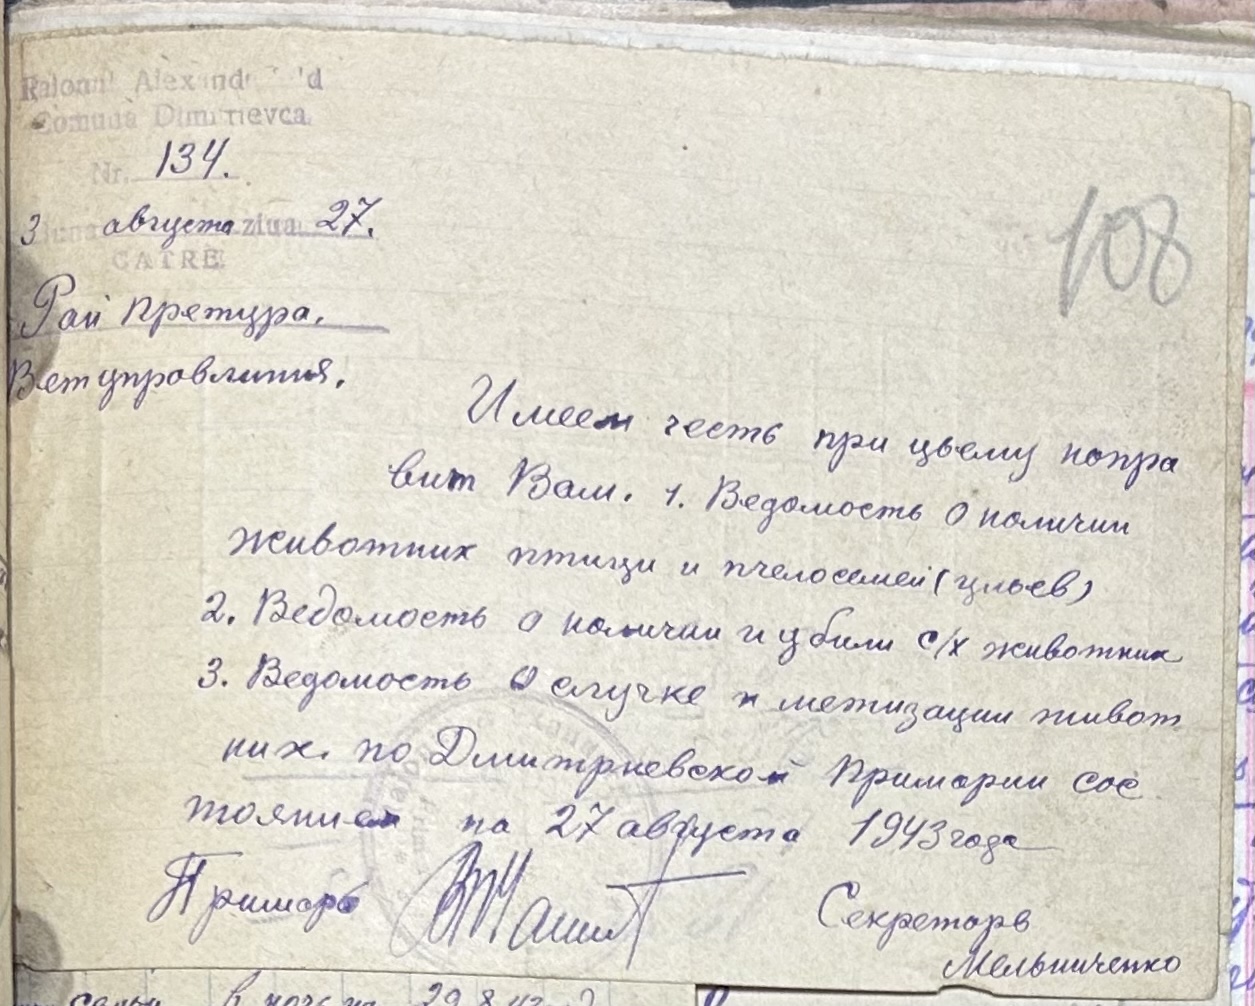 Raionul
Comuna Dimitrievca
Nr. 134.
3 августа ziua 27.
CATRE
Рай претура.
Ветуправлиния.
108
Имеем честь при цьему нопра
вит Вам. 1. Ведомость о наличии
животних птици и пчелосемей (ульев)
2. Ведомость о наличии и убили с/х животних
3. Ведомость о случке и метизации живот
них. по Дмитриевской Примарии сос
тоянием на 27 августа 1943 года
Примарь
Секреторь
Мельниченко